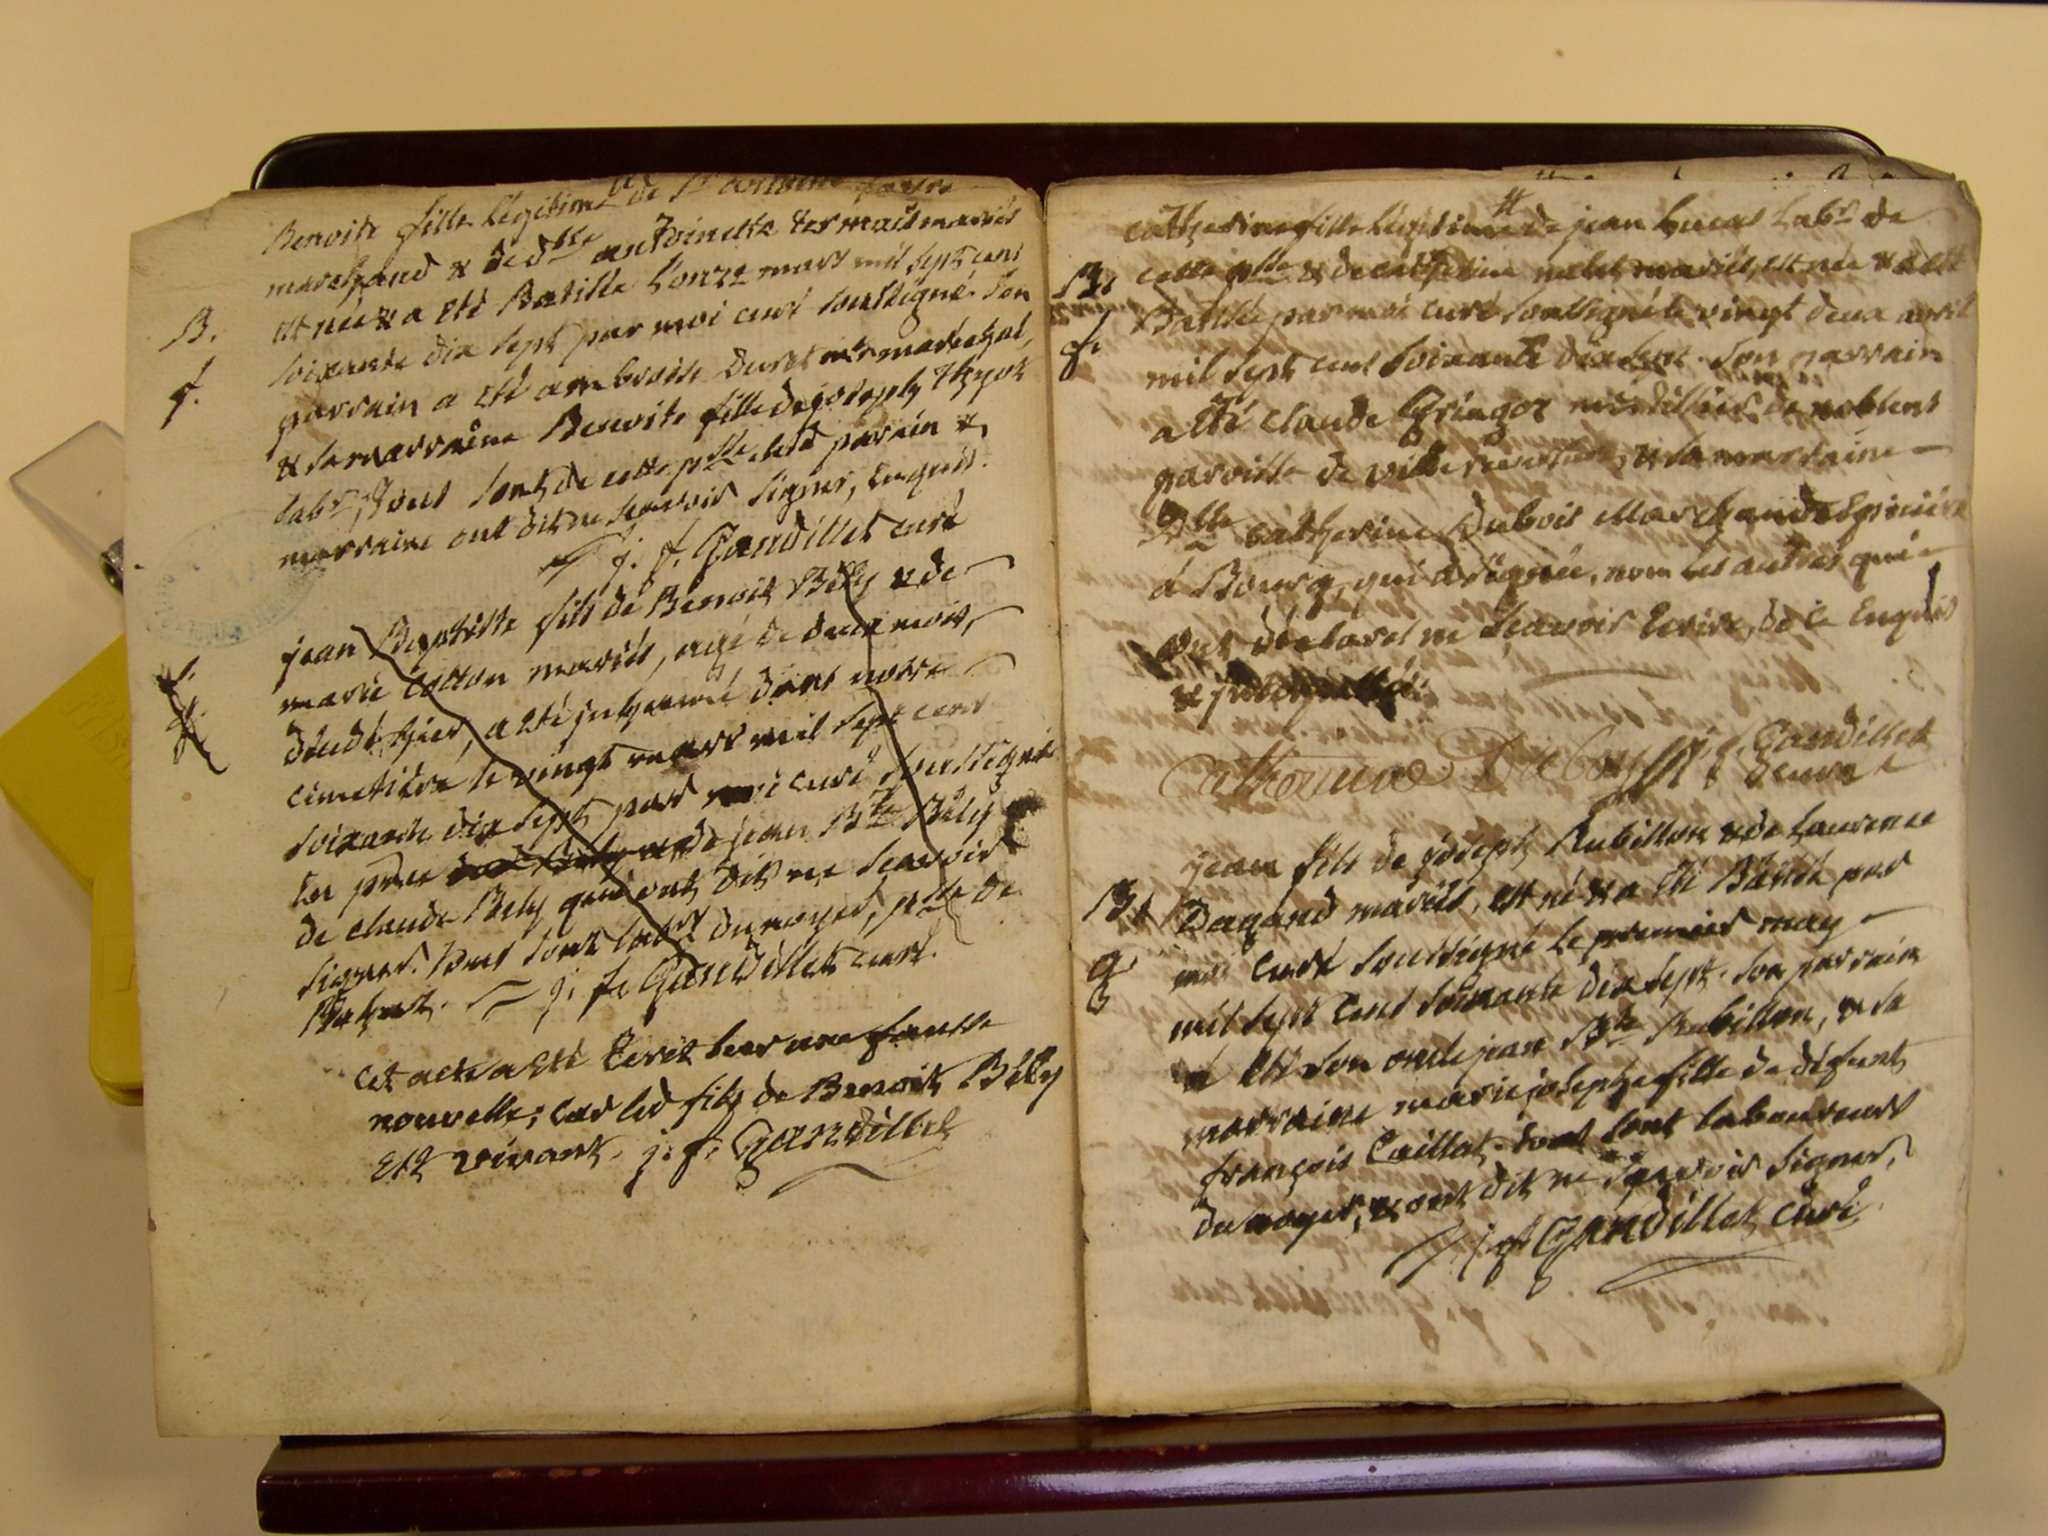 Benoite fille légitime de Sr antoine
marchand & de dlle antoinette termais mariés
B.
est née & a été Batisée l'onze mars mil sept cens
soixante dix sept par moi curé soussigné. Son
f.
parrain a été ambroise Duret mtre marechal,
& sa marraine Benoite fille de joseph
labr, tous sont de cette psse led parrein &
marraine ont dit ne scavoir signer, Enquis.
j. f. Gandillet curé
jean Baptiste fils de Benoit Bély & de
marie Cotton mariés, agé de deux mois,
décédé hier, a été inhumé dans notre
cimetière le vingt mars mil sept cens
soixante dix sept par moi curé soussigné
En pnce de jean Bte Bély
de claude Bely qui ont dit ne scavoir
signer. tous sont labrs du noyer, psse de
j. f. Gandillet curé.
Cet acte a été Ecrit sur une fausse
nouvelle; car led fils de Benoit Bély
Est vivant. j. f. Gandillet
catherine fille légitime de jean Lucas Labr de
B.
cette psse & de catherine mariés, est née & a été
Batisée par moi curé soussigné le vingt deux avril
f.
mil sept cent soixante dix sept. Son parrain
a été claude de noblens
paroisse de ville reversure, & sa marraine
Dlle catherine Dubois Marchande Epiciére
á Bourg, qui a signée, non les autres qui
ont déclarés ne scavoir Ecrire, de ce Enquis
&
Catherine Duboy j. f. Gandillet
curé
jean fils de joseph Rubillon & de Laurence
B.
Dagand mariés, est né & a été Batisé par
moi Curé soussigné le premier may
g.
mil sept Cens soixante dix sept. son parrain
a été son oncle jean Bte Rubillon, & sa
marraine marie josephe fille de défunt
françois Caillat. tous sont laboureurs
du noyer, & ont dit ne scavoir signer,
j. f. Gandillet curé